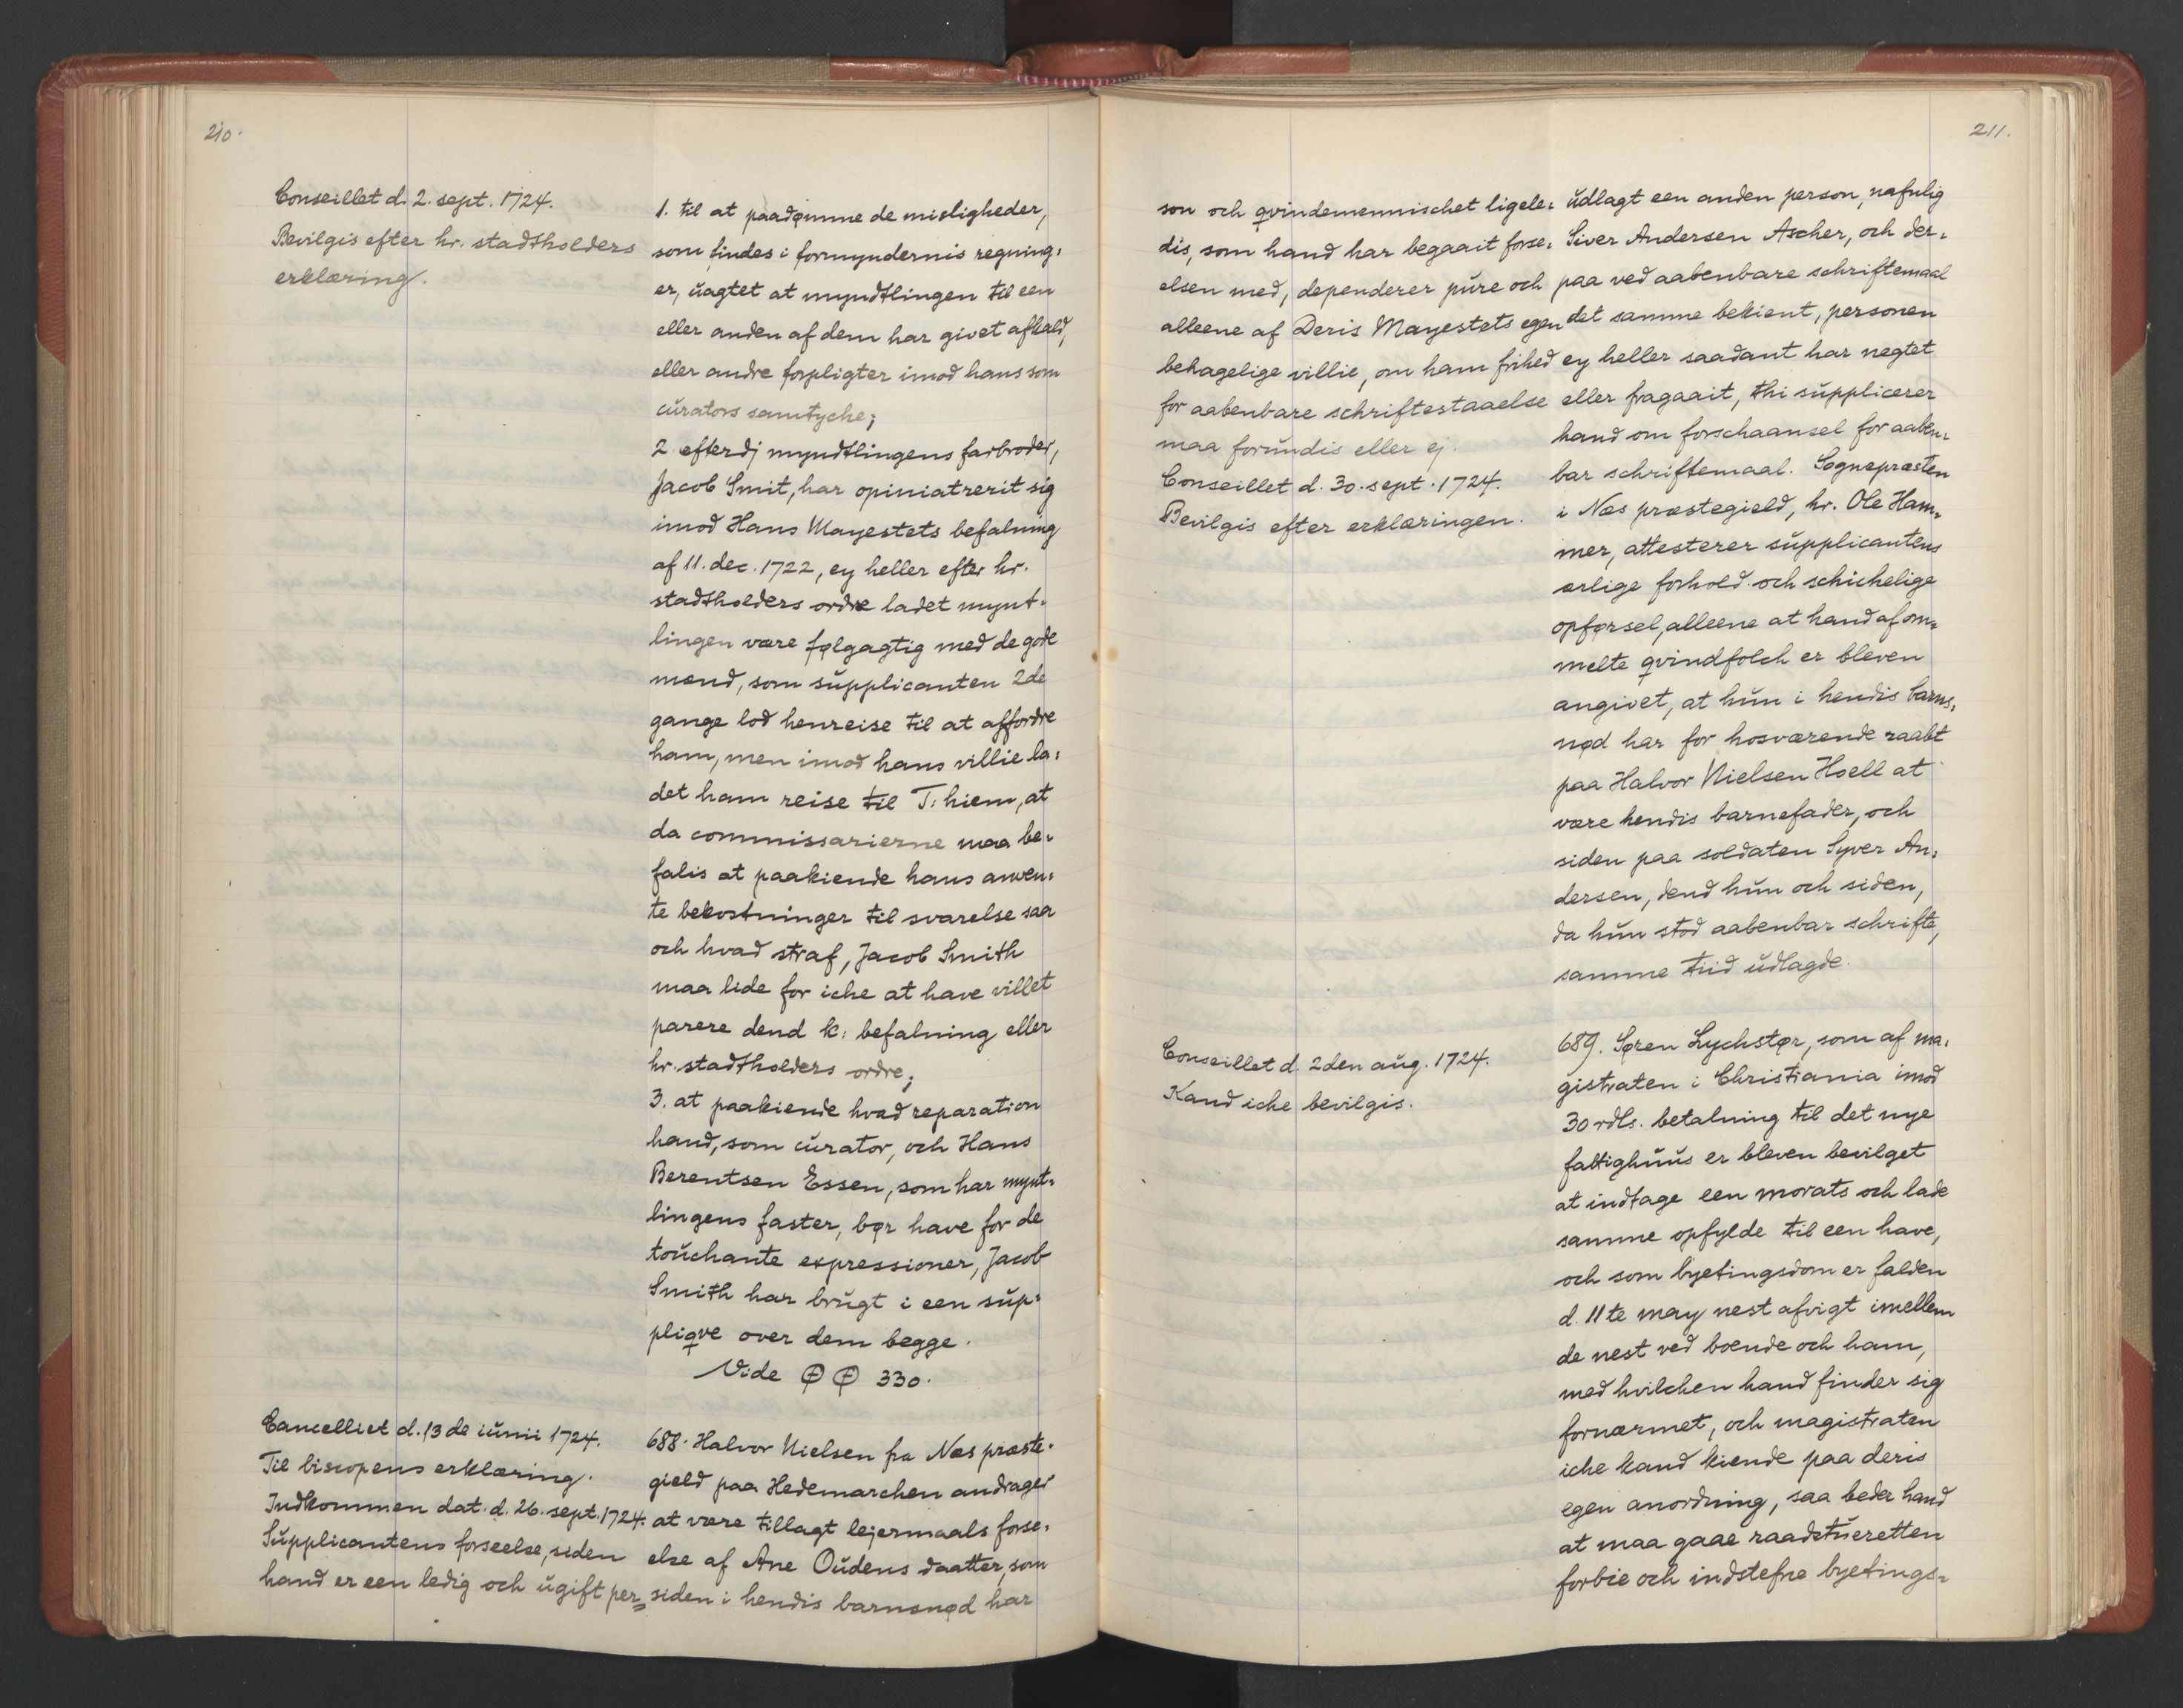 210.
Conseillet d. 2. sept. 1724.
Bevilgis efter hr. stadtholders
erklæring.
1. til at paadømme de misligheder,
som findes i formyndernis regning:
er, uagtet at myndtlingen til een
eller anden af dem har givet afkald,
eller andre forpligter imod hans som
curators samtyche;
2 efterdj myndtlingens farbroder,
Jacob Smit, har opiniatrerit sig
imod Hans Mayestets befalning
af 11. dec. 1722, ey heller efter hr.
stadtholders ordre ladet mynt-
lingen være følgagtig med de gode
mænd, som supplicanten 2de
gange lod henreise til at affordre
ham, men imod hans villie la:
det ham reise til T: hiem, at
da commissarierne maa be-
falis at paakiende hans anven:
te bekostninger til svarelse saa
och hvad straf, Jacob Smith
maa lide for iche at have villet
parere dend k: befalning eller
hr. stadtholders ordre;
3. at paakiende hvad reparation
hand, som curator, och Hans
Berentsen Essen, som har mynt-
lingens faster, bør have for de
touchante expressioner, Jacob
Smith har brugt i een sup:
pliqve over dem begge.
Vide ⌽ ⌽ 330.
Cancelliet d. 13de iunii 1724.
Til biscopens erklæring.
Indkommen dat. d. 26. sept. 1724:
Supplicantens forseelse, siden
hand er een ledig och ugift per=
688. Halvor Nielsen fra Næs præste-
gield paa Hedemarchen andrager
at være tillagt lejermaals forse:
else af Ane Oudens daatter, som
siden i hendis barnsnød har
211.
son och qvindemennischet ligele:
dis, som hand har begaait forse:
elsen med, dependerer pure och
alleene af Deris Mayestets egen
behagelige villie, om ham frihed
for aabenbare schriftestaaelse
maa forundis eller ej.
Conseillet d. 30. sept. 1724.
Bevilgis efter erklæringen.
udlagt een anden person, nafnlig
Siver Andersen Ascher, och der:
paa ved aabenbare schriftemaal
det samme bekient, personen
ey heller saadant har negtet
eller fragaait, thi supplicerer
hand om forschaansel for aaben:
bar schriftemaal. Sognepræsten
i Næs præstegield, hr. Ole Ham-
mer, attesterer supplicantens
ærlige forhold och schichelige
opførsel, alleene at hand af om-
melte qvindfolch er bleven
angivet, at hun i hendis barns:
nød har for hosværende raabt
paa Halvor Nielsen Hoell at
være hendis barnefader, och
siden paa soldaten Syver An:
dersen, dend hun och siden,
da hun stod aabenbar schrifte,
samme tiid udlagde.
Conseillet d. 2den aug. 1724.
Kand iche bevilgis.
689. Søren Lychstør, som af ma:
gistraten i Christiania imod
30 rdls. betalning til det nye
fattighuus er bleven bevilget
at indtage een morats och lade
samme opfylde til een have,
och som byetingsdom er falden
d. 11te may nest afvigt imellem
de nest ved boende och ham,
med hvilchen hand finder sig
fornærmet, och magistraten
iche kand kiende paa deris
egen anordning, saa beder hand
at maa gaae raadstueretten
forbie och indstefne byetings-